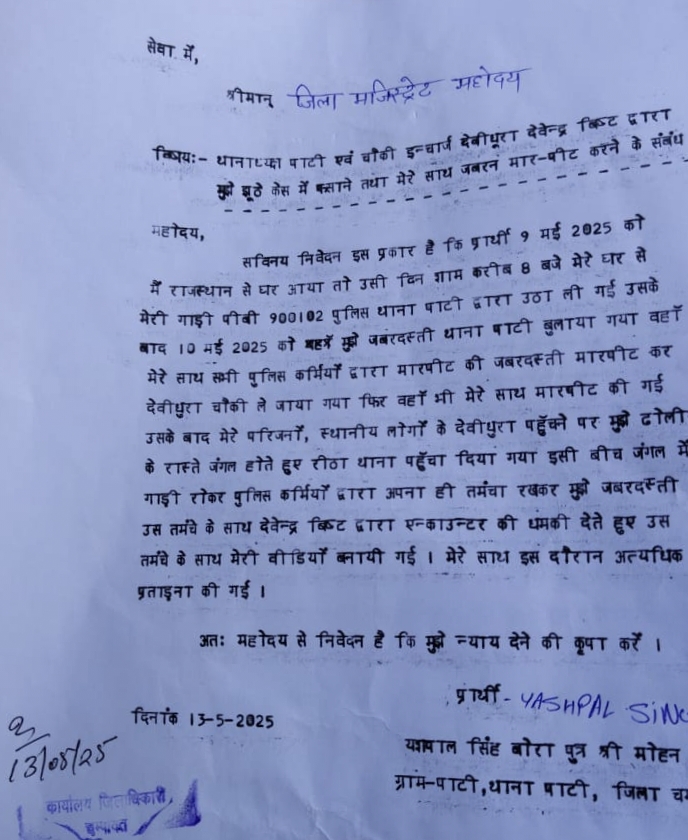 सेवा में,
श्रीमान् जिला मजिस्ट्रेट महोदय
विषयः- थानाध्यक्ष पाटी एवं चौकी इन्चार्ज देवीधूरा देवेन्द्र बिष्ट द्वारा
मुझे झूठे केस में फसाने तथा मेरे साथ जबरन मार-पीट करने के संबंध
महोदय,
सविनय निवेदन इस प्रकार है कि प्रार्थी 9 मई 2025 को
मैं राजस्थान से घर आया तो उसी दिन शाम करीब 8 बजे मेरे घर से
मेरी गाड़ी पीबी 900102 पुलिस थाना पाटी द्वारा उठा ली गई उसके
बाद 10 मई 2025 को मुझे जबरदस्ती थाना पाटी बुलाया गया वहाँ
मेरे साथ सभी पुलिस कर्मियों द्वारा मारपीट की जबरदस्ती मारपीट कर
देवीधुरा चौकी ले जाया गया फिर वहाँ भी मेरे साथ मारपीट की गई
उसके बाद मेरे परिजनों, स्थानीय लोगों के देवीधुरा पहुँचने पर मुझे ढोली
के रास्ते जंगल होते हुए रीठा थाना पहुँचा दिया गया इसी बीच जंगल में
गाड़ी रोकर पुलिस कर्मियों द्वारा अपना ही तमंचा रखकर मुझे जबरदस्ती
उस तमंचे के साथ देवेन्द्र बिष्ट द्वारा एन्काउन्टर की धमकी देते हुए उस
तमंचे के साथ मेरी वीडियों बनायी गई । मेरे साथ इस दौरान अत्यधिक
प्रताड़ना की गई ।
अतः महोदय से निवेदन है कि मुझे न्याय देने की कृपा करें ।
प्रार्थी - YASHPAL
दिनांक 13-5-2025
यशपाल सिंह बोरा पुत्र श्री मोहन
ग्राम-पाटी, थाना पाटी, जिला
13/05/25
कार्यालय जिलाधिकारी,
चम्पावत